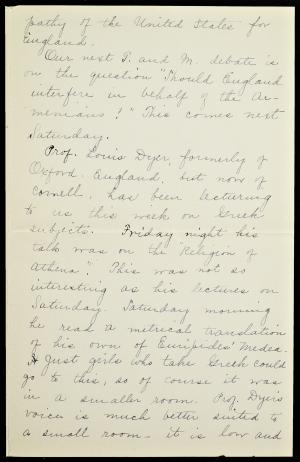 pathy of the United States for
England.
Our next P. and M. debate is
on the question "Should England
interfere in behalf of the Ar-
menians!" This comes next
Saturday.
Prof. Louis Dyer, formerly of
Oxford, England, but now of
Cornell, has been lecturing
to us this week on Greek
subjects. Friday night his
talk was on the "Religion of
Athena". This was not so
interesting as his lectures on
Saturday. Saturday morning
he read a metrical translation
of his own of Euripides' Medea.
Just girls who take Greek could
go to this, so of course it was
in a smaller room. Prof. Dyer's
voice is much better suited to
a small room - it is low and